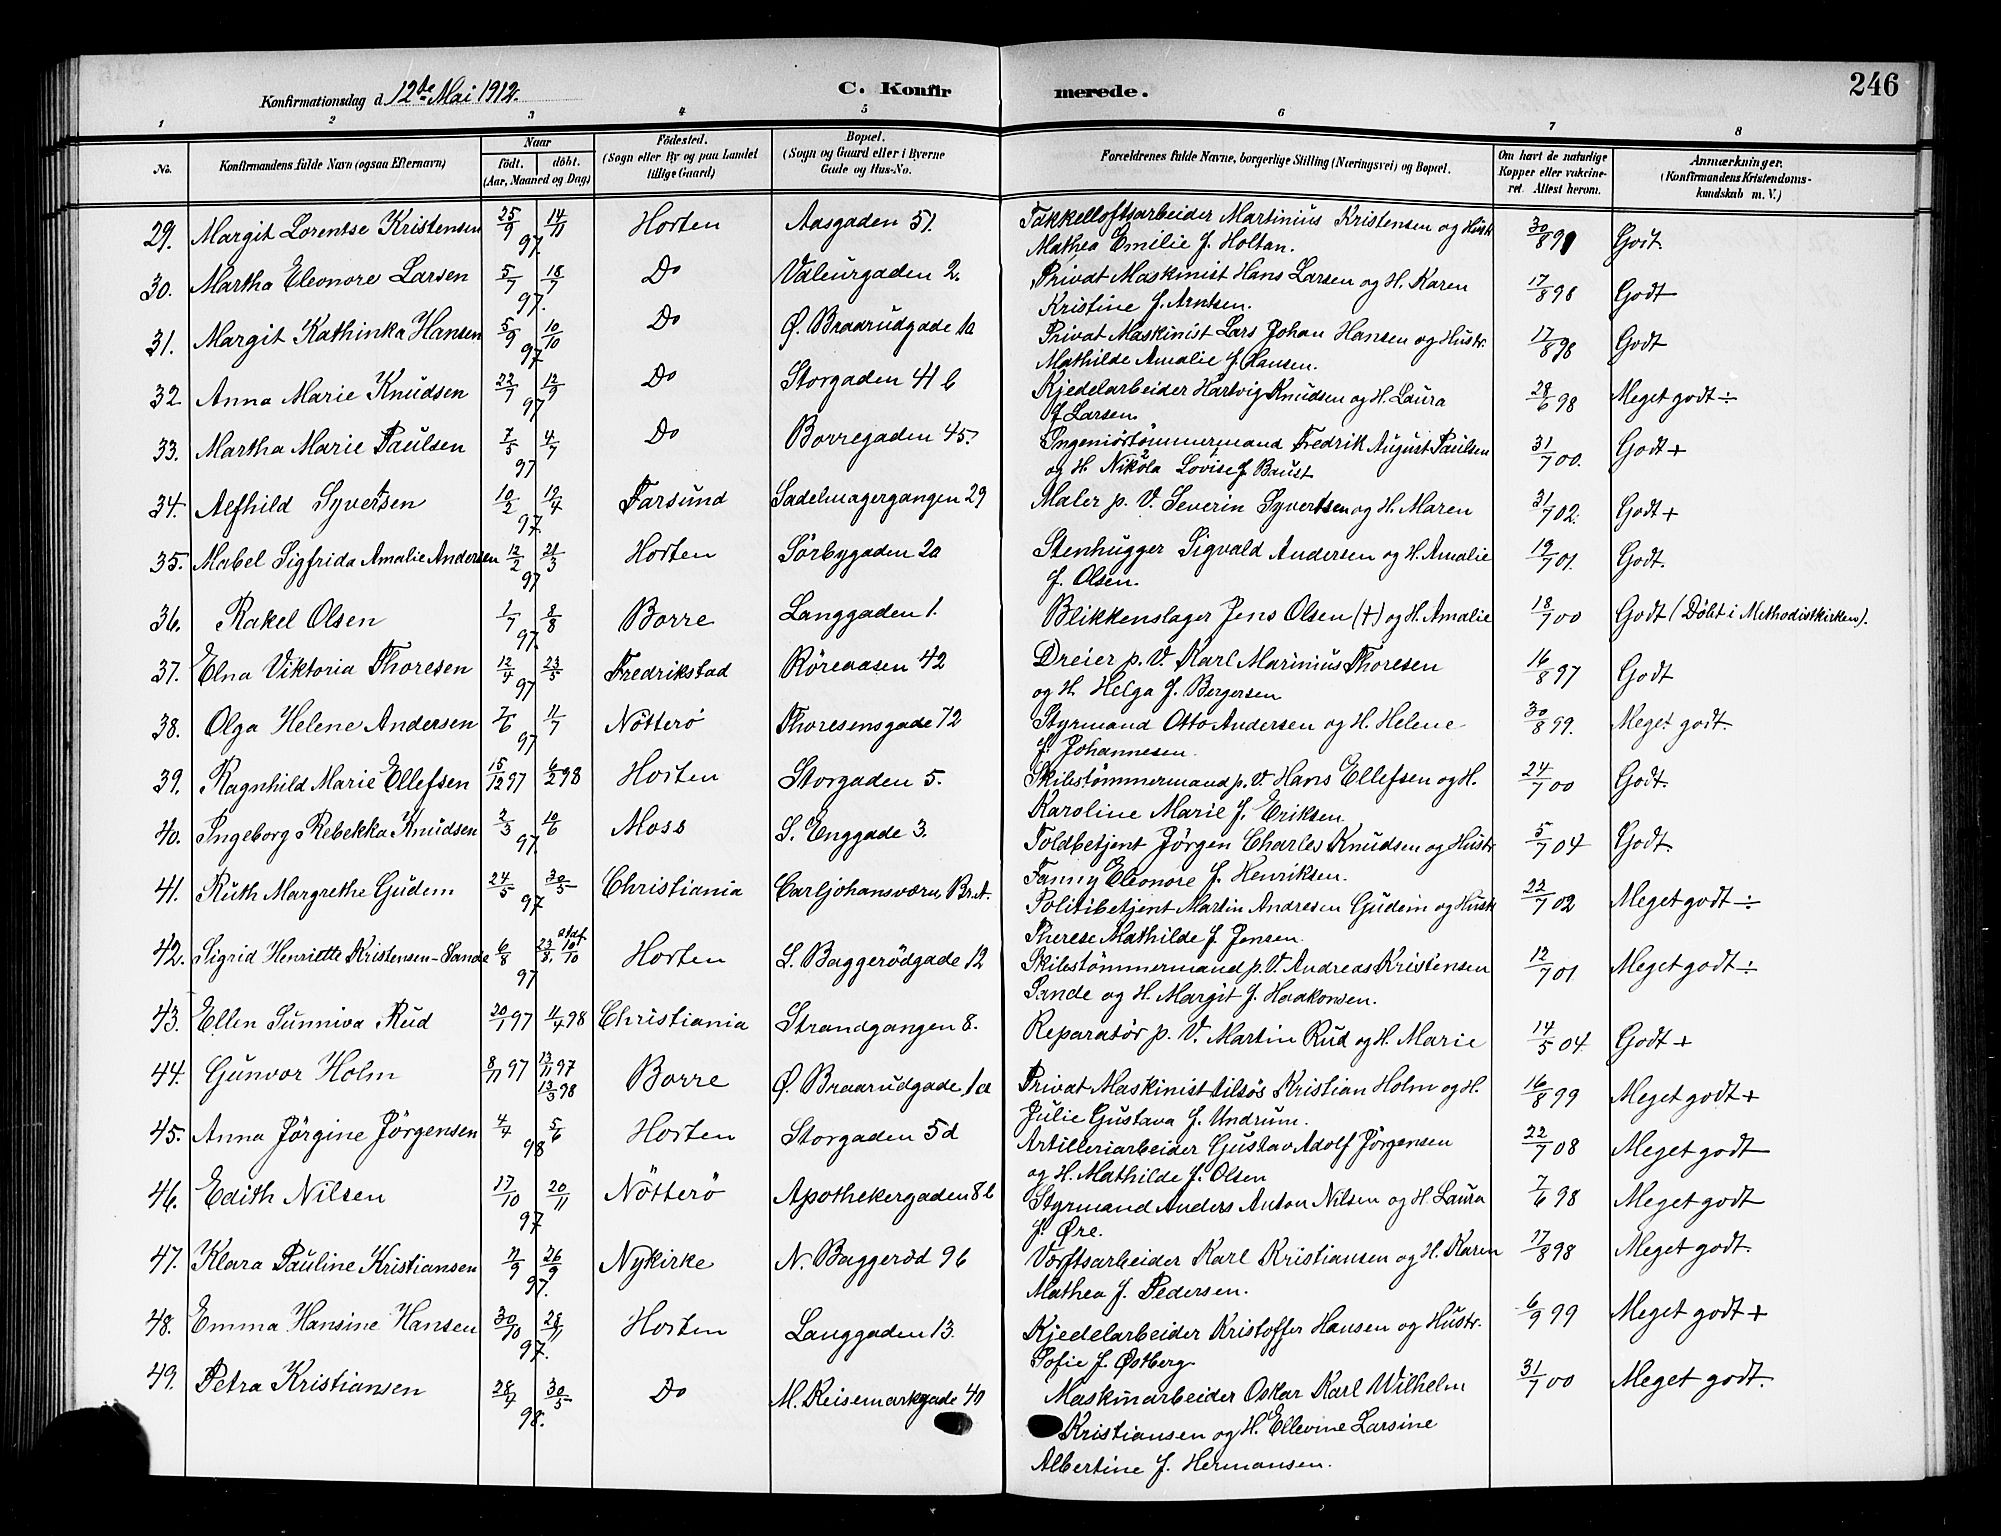 246
Konfirmationsdag d. 12te Mai 1912.
C. Konfirmerede.
1 2 3 4 5 6 7 8
No. Konfirmandens fulde Navn (ogsaa Efternavn) Naar födt. döbt. (Aar, Maaned og Dag) Födested. (Sogn eller By og paa Landet tillige Gaard) Bopæl. (Sogn og Gaard eller i Byerne Gade og Hus-No. Forældrenes fulde Navne, borgerlige Stilling (Næringsvei) og Bopæl. Om havt de naturlige Kopper eller vakcineret. Attest herom. Anmærkninger. (Konfirmandens Kristendomskundskab m. V.)
29. Margit Lorentse Kristensen 25/9 14/11 97. Horten Aasgaden 51. Takkelloftsarbeider Martinius Kristensen og Hustr. 30/8 9 Godt
Mathea Emilie f. Holtan.
30. Martha Eleonore Larsen 5/7 18/7 97. Do Valeurgaden 2. Privat Maskinist Hans Larsen og H. Karen 17/8 98 Godt
Kristine f. Arntsen.
31. Margit Kathinka Hansen 5/9 10/10 97 Do Ø. Braarudgade 1a Privat Maskinist Lars Johan Hansen og Hustr. 17/8 98 Godt
Mathilde Amalie f. Hansen.
32 Anna Marie Knudsen 22/7 12/9 97 Do Storgaden 41 b Kjedelarbeider Hartvig Knudsen og H. Laura 28/6 98 Meget godt ÷
f Larsen.
33. Martha Marie Paulsen 7/5 4/7 97 Do Borregaden 45. Ingeniörtömmermand Fredrik August Paulsen 31/7 00. Godt +
og H. Nikola Lovise f Baust
34. Alfhild Syversen 10/2 19/4 97. Farsund Sadelmagergangen 29 Maler p. V. Severin Syvertsen og H. Maren 31/7 02. Godt +
35. Mabel Sigfrida Amalie Andersen 12/2 21/3 97 Horten Sörbygaden 20 Stenhugger Sigvald Andersen og H. Amalie 19/7 01. Godt.
f. Olsen.
36. Rakel Olsen 1/7 8/8 97. Borre Langgaden 1. Blikkenslager Jens Olsen (†) og H. Amalie 18/7 00 Godt (Döbt i Methodistkirken).
37. Elna Viktoria Thoresen 12/4 23/5 97 Fredrikstad Röreaasen 42 Dreier p. V. Karl Marinius Thoresen 16/8 97 Godt
og H. Helga f. Bergersen
38. Olga Helene Andersen 7/6 11/7 97 Nötterö Thoresensgade 72 Styrmand Otto Andersen og H. Helene 30/8 99. Meget godt.
f. Johannesen.
39. Ragnhild Marie Ellefsen 15/12 97 6/2 98 Horten Storgaden 5. Skibstömmermand p. V. Hans Ellefsen og H. 24/7 00 Godt.
Karoline Marie f. Eriksen.
40. Ingeborg Rebekka Knudsen 2/3 10/6 97. Moss S. Enggade 3. Toldbetjent Jörgen Charles Knudsen og Hustr. 5/7 04 Godt.
Fanny Eleonore f. Henriksen.
41. Ruth Margrethe Gudem 24/5 30/5 97 Christiania Carljohansværn, Br. A. Politibetjent Martin Andresen Gudem og Hustr. 22/7 02 Meget godt ÷
Therese Mathilde f. Jensen.
42. Sigrid Henriette Kristensen-Sande 6/8 23/8. stdf 10/10 97 Horten L. Baggerödgade 12 Skibstömmermand p. V. Andreas Kristensen 12/7 01 Meget godt ÷
Sande og H. Margit f. Haakonsen.
43. Ellen Sunniva Rud 20/1 97 11/4 98 Christiania Strandgangen 8. Reparatör p. V. Martin Rud og H. Marie 14/5 04. Godt +
44. Gunvor Holm 8/11 97 13/11 97 13/3 98 Borre Ø. Braarudgade 1a Privat Maskinist tilsös Kristian Holm og H. 16/8 99 Meget godt +
Julie Gustava f. Undrum.
45. Anna Jörgine Jörgensen 4/4 5/6 98 Horten Storgaden 5d Artilleriarbeider Gustav Adolf Jörgensen 22/7 08 Meget godt
og H. Mathilde f. Olsen
46. Edith Nilsen 17/10 20/11 97 Nötterö Apothekergaden 8 b Styrmand Anders Anton Nilsen og H. Laura 7/6 98 Meget godt
f. Øre.
47. Klara Pauline Kristiansen 11/9 26/9 97. Nykirke N. Baggeröd 9 b Værftsarbeider Karl Kristiansen og H. Karen 17/8 98 Meget godt.
Mathea f. Pedersen.
48. Emma Hansine Hansen 30/10 28/11 97. Horten Langgaden 13. Kjedelarbeider Kristoffer Hansen og Hustr. 6/9 99 Meget godt +
Sofie f. Østberg.
49. Petra Kristiansen 28/4 30/5 98. Do M. Reisemarkgade 40 Maskinarbeider Oskar Karl Wilhelm 31/7 00 Meget godt.
Kristiansen og H. Ellevine Larsine
Albertine f. Hermansen.